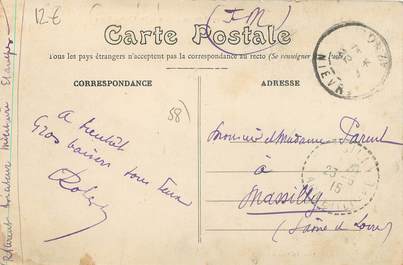 12€
(F.M)
Carte Postale
Tous les pays étrangers n'acceptent pas la correspondance au recto (Se renseigner
CORRESPONDANCE
ADRESSE
NIEVRE
58)
A bientôt
Gros baisers tous deux
Monsieur et Madame Parent
à
Massilly
(Saône et Loire)
23
15